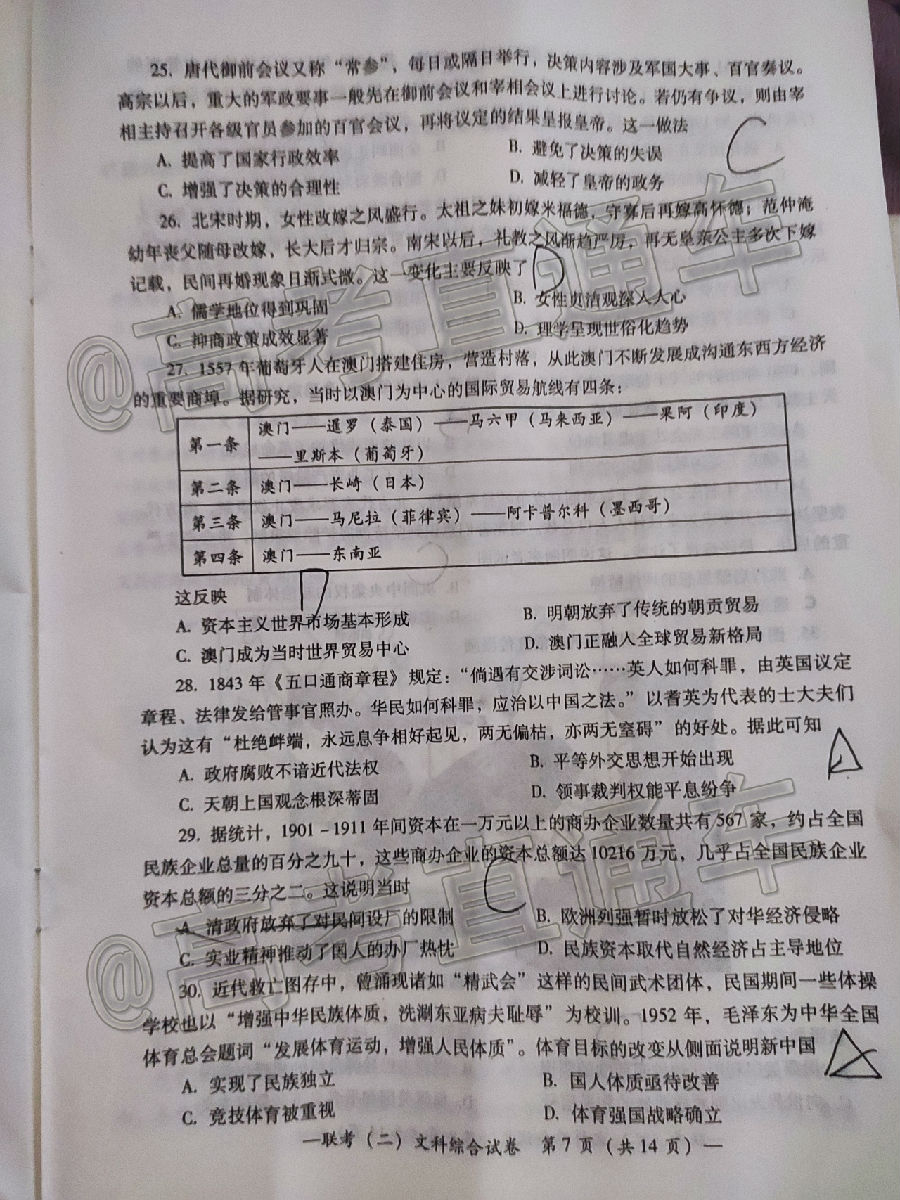 25. 唐代御前会议又称“常参”，每日或隔日举行，决策内容涉及军国大事、百官奏议。
高宗以后，重大的军政要事一般先在御前会议和宰相会议上进行讨论。若仍有争议，则由宰
相主持召开各级官员参加的百官会议，再将议定的结果呈报皇帝。这一做法
C
A. 提高了国家行政效率 B. 避免了决策的失误
C. 增强了决策的合理性 D. 减轻了皇帝的政务
26. 北宋时期，女性改嫁之风盛行。太祖之妹初嫁米福德，守寡后再嫁高怀德；范仲淹
幼年丧父随母改嫁，长大后才归宗。南宋以后，礼教之风渐趋严厉，再无皇亲公主多次下嫁
记载，民间再婚现象日渐式微。这一变化主要反映了
D
A. 儒学地位得到巩固 B. 女性贞洁观深入人心
C. 抑商政策成效显著 D. 理学呈现世俗化趋势
27. 1557 年葡萄牙人在澳门搭建住房，营造村落，从此澳门不断发展成沟通东西方经济
的重要商埠。据研究，当时以澳门为中心的国际贸易航线有四条：
第一条 澳门——暹罗（泰国）——马六甲（马来西亚）——果阿（印度）
——里斯本（葡萄牙）
第二条 澳门——长崎（日本）
第三条 澳门——马尼拉（菲律宾）——阿卡普尔科（墨西哥）
第四条 澳门——东南亚
这反映
D
A. 资本主义世界市场基本形成 B. 明朝放弃了传统的朝贡贸易
C. 澳门成为当时世界贸易中心 D. 澳门正融入全球贸易新格局
28. 1843 年《五口通商章程》规定：“倘遇有交涉词讼……英人如何科罪，由英国议定
章程、法律发给管事官照办。华民如何科罪，应治以中国之法。”以耆英为代表的士大夫们
认为这有“杜绝衅端，永远息争相好起见，两无偏枯，亦两无窒碍”的好处。据此可知
A
A. 政府腐败不谙近代法权 B. 平等外交思想开始出现
C. 天朝上国观念根深蒂固 D. 领事裁判权能平息纷争
29. 据统计，1901－1911 年间资本在一万元以上的商办企业数量共有 567 家，约占全国
民族企业总量的百分之九十，这些商办企业的资本总额达 10216 万元，几乎占全国民族企业
资本总额的三分之二。这说明当时
C
A. 清政府放弃了对民间设厂的限制 B. 欧洲列强暂时放松了对华经济侵略
C. 实业精神推动了国人的办厂热忱 D. 民族资本取代自然经济占主导地位
30. 近代救亡图存中，曾涌现诸如“精武会”这样的民间武术团体，民国期间一些体操
学校也以“增强中华民族体质，洗涮东亚病夫耻辱”为校训。1952 年，毛泽东为中华全国
体育总会题词“发展体育运动，增强人民体质”。体育目标的改变从侧面说明新中国
A
A. 实现了民族独立 B. 国人体质亟待改善
C. 竞技体育被重视 D. 体育强国战略确立
—联考（二）文科综合试卷 第 7 页（共 14 页）—
@高考直通车
@高考直通车